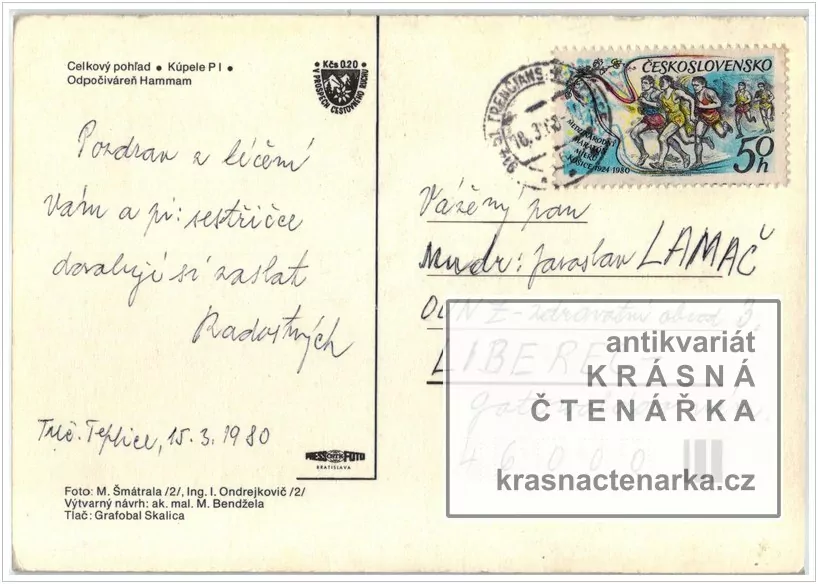 Celkový pohľad • Kúpele P I •
Odpočiváreň Hammam
Kčs 0.20
V PROSPECH CESTOVNÉHO RUCHU
Pozdrav z léčení
Vám a pí: sestřičce
dovoluji si zaslat
Radostných
Trč. Teplice, 15. 3. 1980
PRESS ČMTK FOTO
BRATISLAVA
Foto: M. Šmátrala /2/, Ing. I. Ondrejkovič /2/
Výtvarný návrh: ak. mal. M. Bendžela
Tlač: Grafobal Skalica
ČESKOSLOVENSKO
MEZINÁRODNÍ
MARATÓN
MIERU
KOŠICE 1924-1980
50h
Vážený pan
Mudr: Jaroslav LAMAČ
OÚNZ - zdravotní obvod 3,
LIBEREC
46000
antikvariát
KRÁSNÁ
ČTENÁŘKA
krasnactenarka.cz